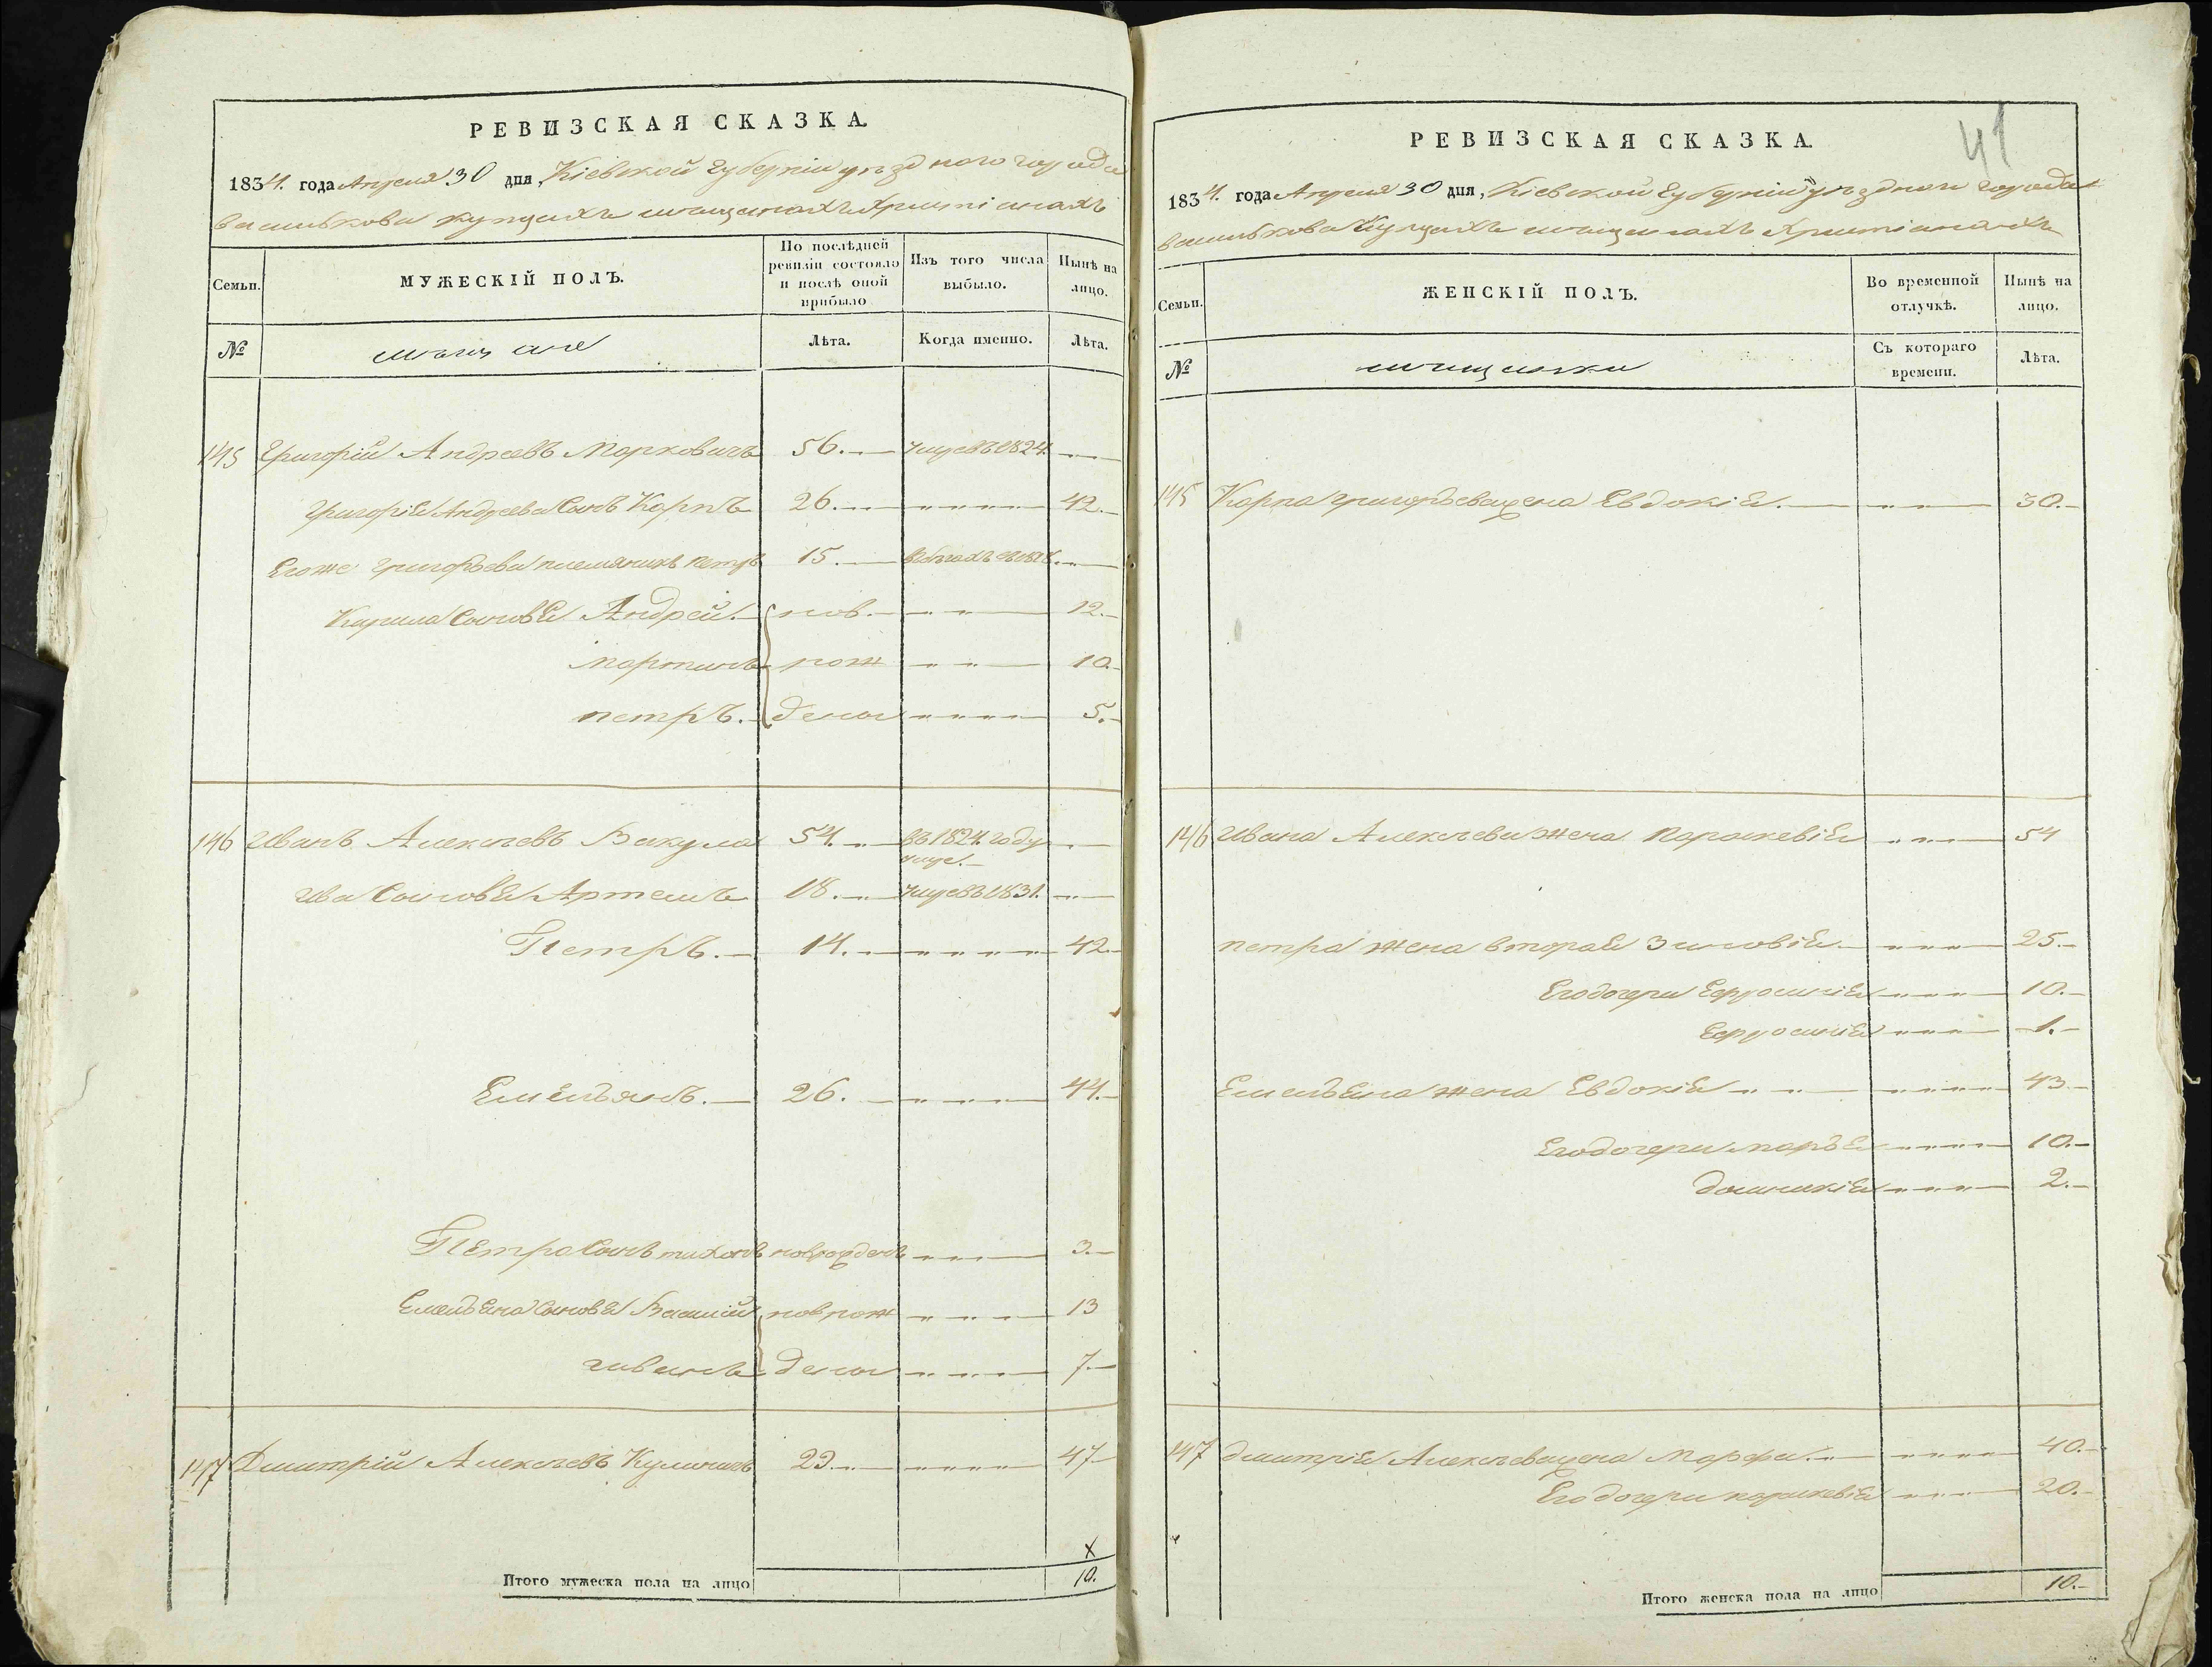 РЕВИЗСКАЯ СКАЗКА.
1834. года Апреля 30 дня, Кіевской Губерніи уѣзднаго города
василькова купцахъ мѣщанахъ християнахъ
Семьи.
МУЖЕСКІЙ ПОЛЪ.
По послѣдней ревизіи состояло и послѣ оной прибыло
Изъ того числа выбыло.
Нынѣ на лицо.
№
мѣщане
Лѣта.
Когда именно.
Лѣта.
145 Григорій Андреевъ Марковичъ 56. умре въ 1824
Григорія Андреева Сынъ Карпъ 26. 42.
Егоже Григорьева племяникъ петръ 15. въ бѣгахъ съ
Сыновья Андрей. нов. 12.
мартинъ рож 10.
петръ. дены 5.
146 Иванъ Алексѣевъ Вакула 54. въ 1824 году умре.
Ива Сыновья Артемъ 18. умре въ 1831.
Петръ. 14. 42
Емельянъ. 26. 44.
Петра Сынъ тихонъ новрожденъ 3.
Емельяна Сыновья Василій новрож 13
иванъ дены 7
147 Дмитрій Алексѣевъ 29. 47
х
Итого мужеска пола на лицо 10.
41
РЕВИЗСКАЯ СКАЗКА.
1834. года Апреля 30 дня, Кіевской Губерніи уѣзднаго города
василькова Купцахъ мѣщанахъ християнахъ
Семьи.
ЖЕНСКІЙ ПОЛЪ.
Во временной отлучкѣ.
Нынѣ на лицо.
№
мѣщанки
Съ котораго времени.
Лѣта.
145 Карпа григорьева жена Евдокія. 30.
146 Ивана Алексѣева жена Параскевія 54
петра жена вторая Зиновія 25.
Его дочери Ефросинія 10.
Ефросинія 1.
Емельяна жена Евдокія 43
Его дочери марья 10.
домникія 2.
147 дмитрія Алексѣева жена Марфа. 40.
Его дочери параскевія 20.
Итого женска пола на лицо 10.